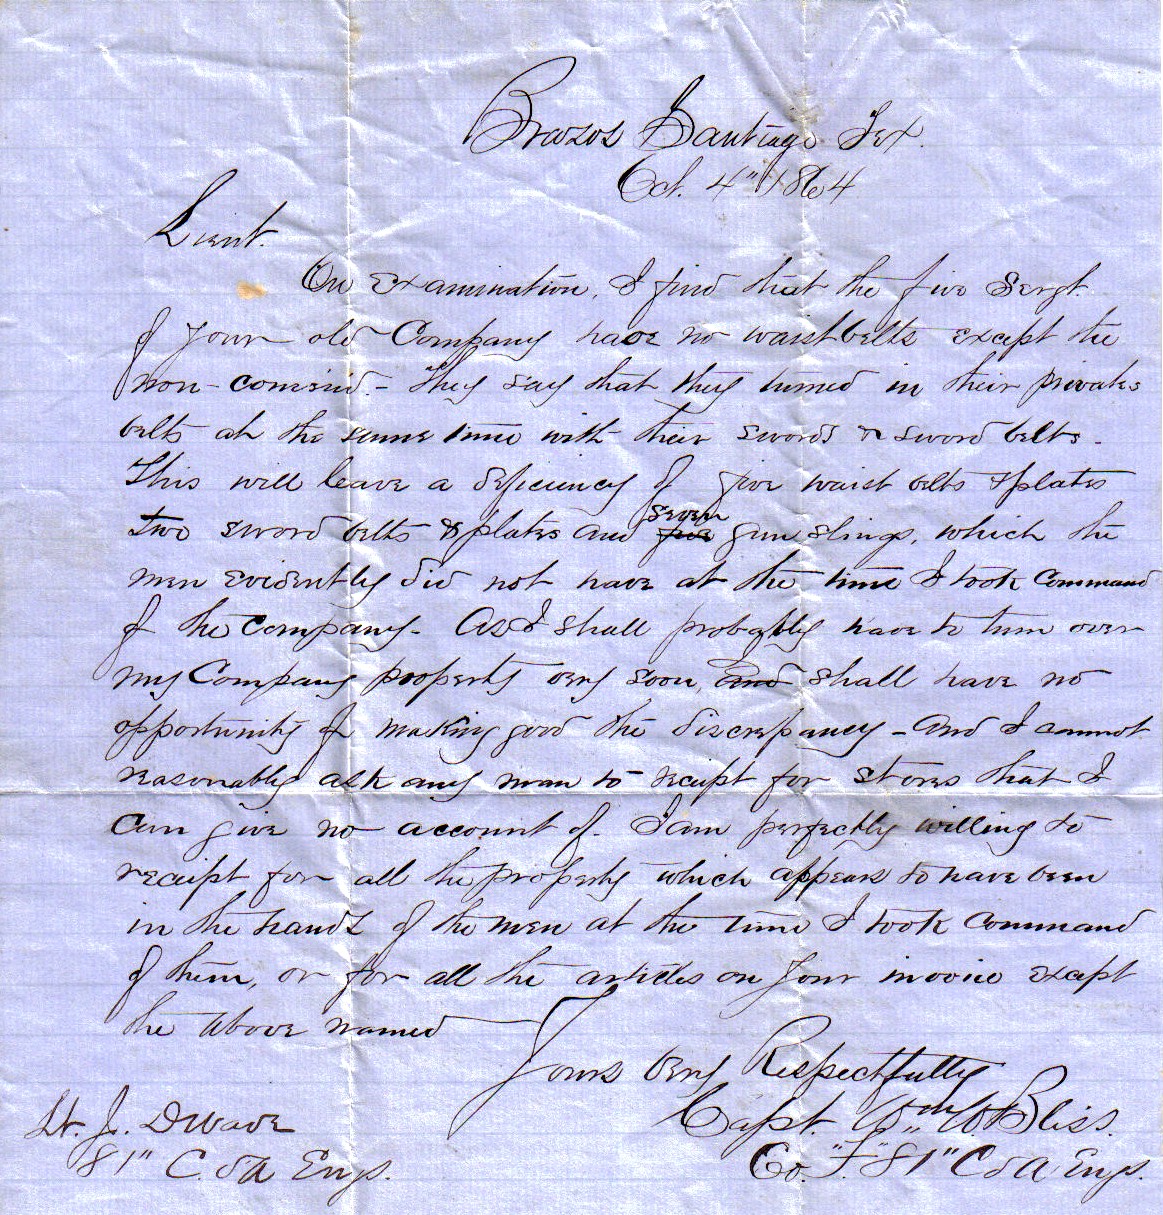 Brazos Santiago Tex.
Oct. 4" 1864
Lieut.
On examination, I find that the five Sergt.
of your old Company have no waistbelts except the
non-comsnd - They say that they turned in their privates
belts at the same time with their swords & sword belts -
This will leave a deficiency of five waist belts & plates
two sword belts & plates and five seven gun slings, which the
men evidently did not have at the time I took Command
of the Company - As I shall probably have to turn over
my Company property very soon, and shall have no
opportunity of making good the discrepancy - and I cannot
reasonably ask any man to reciept for stores that I
can give no account of. I am perfectly willing to
reciept for all the property which appears to have been
in the hands of the men at the time I took Command
of them, or for all the articles on your invoice except
the above named
Yours Very Respectfully
Capt. Wm. Bliss.
Co. "F" 81" C d'A Engs.
Lt. J.
81" C. d'A Engs.